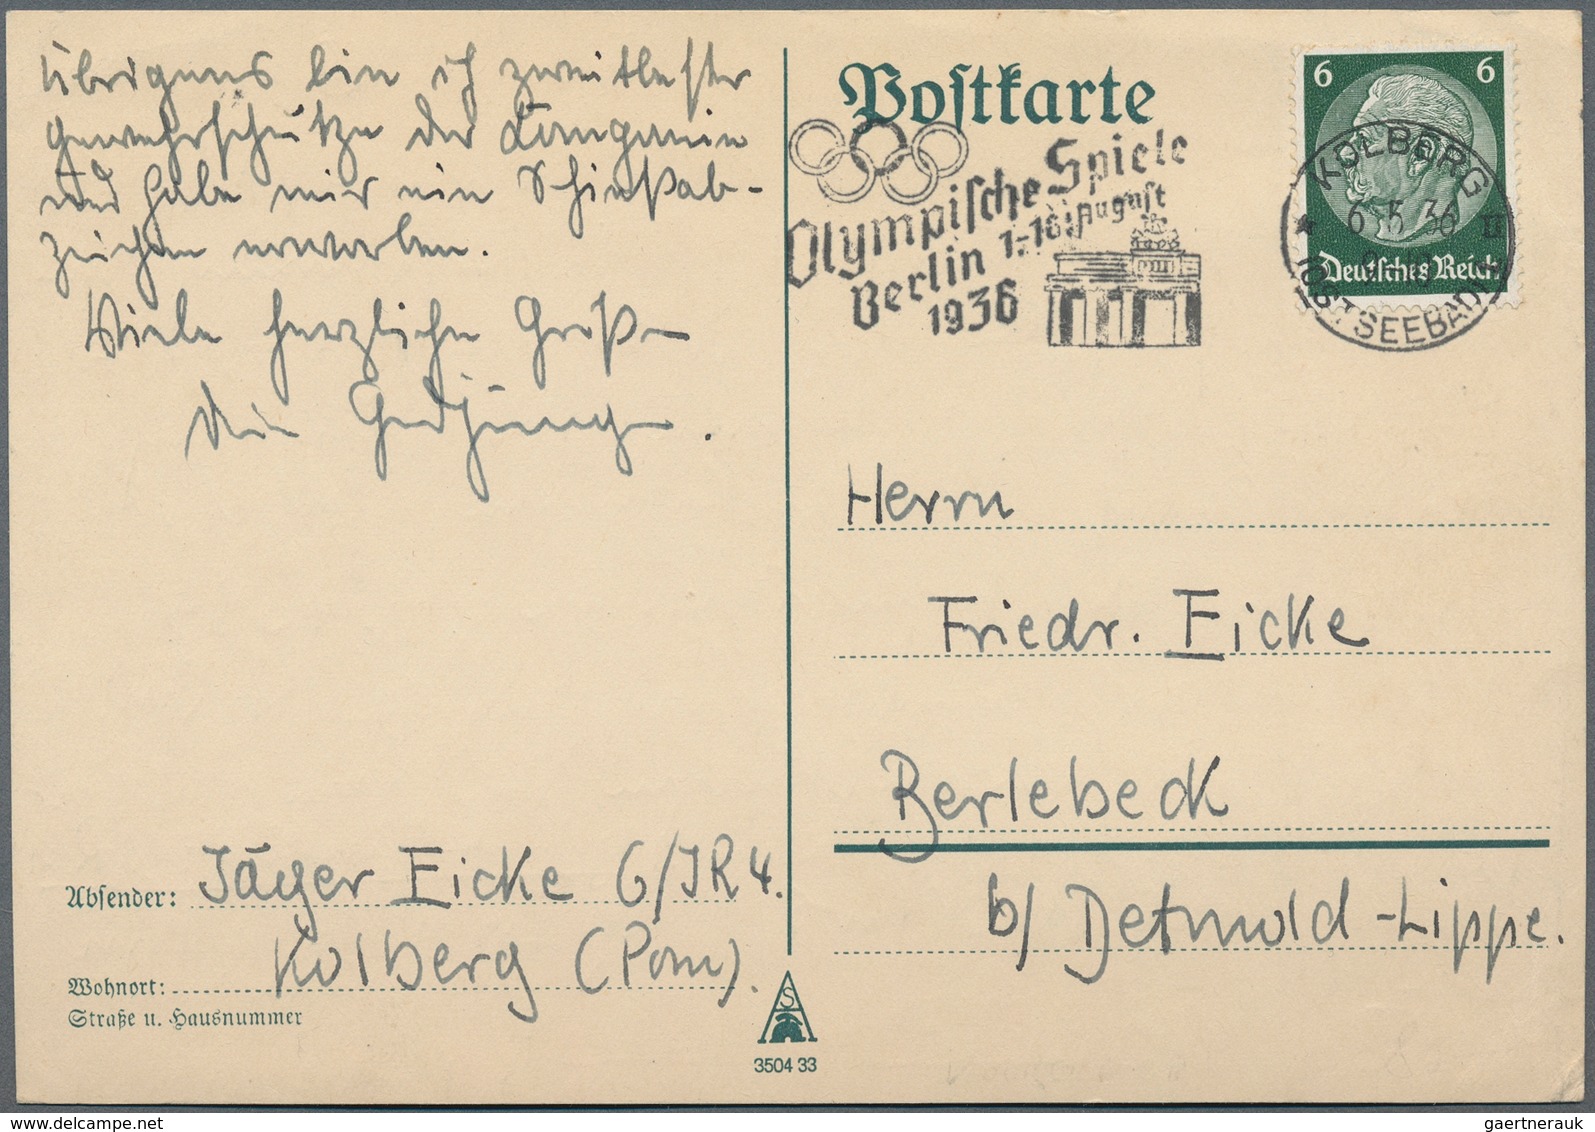 Übrigens bin ich zweitbester
gewehrschütze der Kompanie
und habe mir ein Schießab-
zeichen erworben.
Viele herzliche Grüße
Dein
Absender: Jäger Eicke 6/IR 4.
Kolberg (Pom).
Wohnort:
Straße u. Hausnummer
AS
3504 33
Postkarte
Olympische Spiele
Berlin 1.-16. August
1936
6 6
Deutsches Reich
KOLBERG
6.5.36
II
(OSTSEEBAD)
Herrn
Friedr. Eicke
Berlebeck
b/ Detmold-Lippe.
gaertnerauk